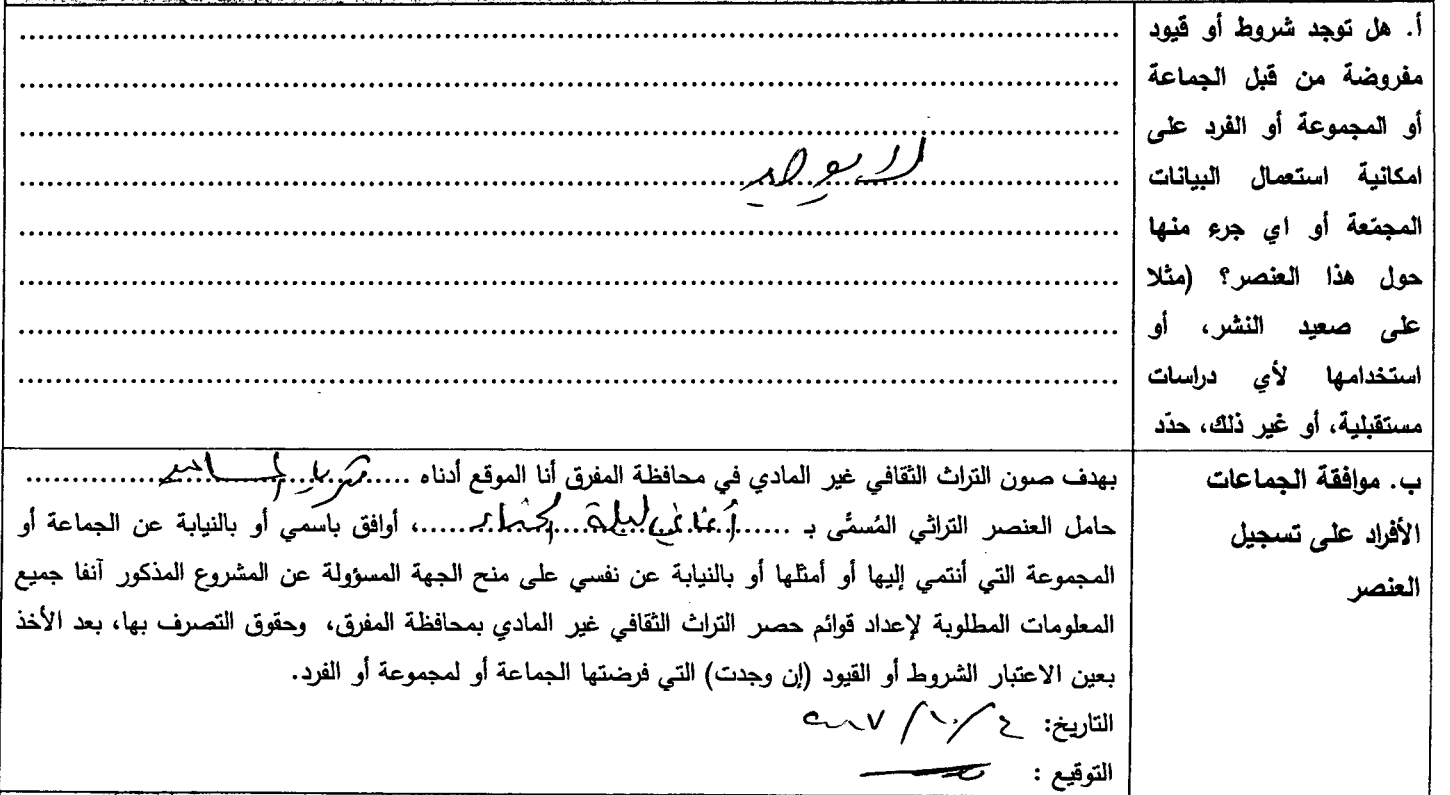 أ. هل توجد شروط أو قيود
مفروضة من قبل الجماعة
أو المجموعة أو الفرد على
امكانية استعمال البيانات
المجمّعة أو اي جرء منها
حول هذا العنصر؟ (مثلا
على صعيد النشر، أو
استخدامها لأي دراسات
مستقبلية، أو غير ذلك، حدّد
لا يوجد
ب. موافقة الجماعات
الأفراد على تسجيل
العنصر
بهدف صون التراث الثقافي غير المادي في محافظة المفرق أنا الموقع أدناه
حامل العنصر التراثي المُسمَّى بـ ......أغاني ليلة الحناء......، أوافق باسمي أو بالنيابة عن الجماعة أو
المجموعة التي أنتمي إليها أو أمثلها أو بالنيابة عن نفسي على منح الجهة المسؤولة عن المشروع المذكور آنفا جميع
المعلومات المطلوبة لإعداد قوائم حصر التراث الثقافي غير المادي بمحافظة المفرق، وحقوق التصرف بها، بعد الأخذ
بعين الاعتبار الشروط أو القيود (إن وجدت) التي فرضتها الجماعة أو لمجموعة أو الفرد.
التاريخ: ٤ / ١٠ / ٢٠١٧
التوقيع :